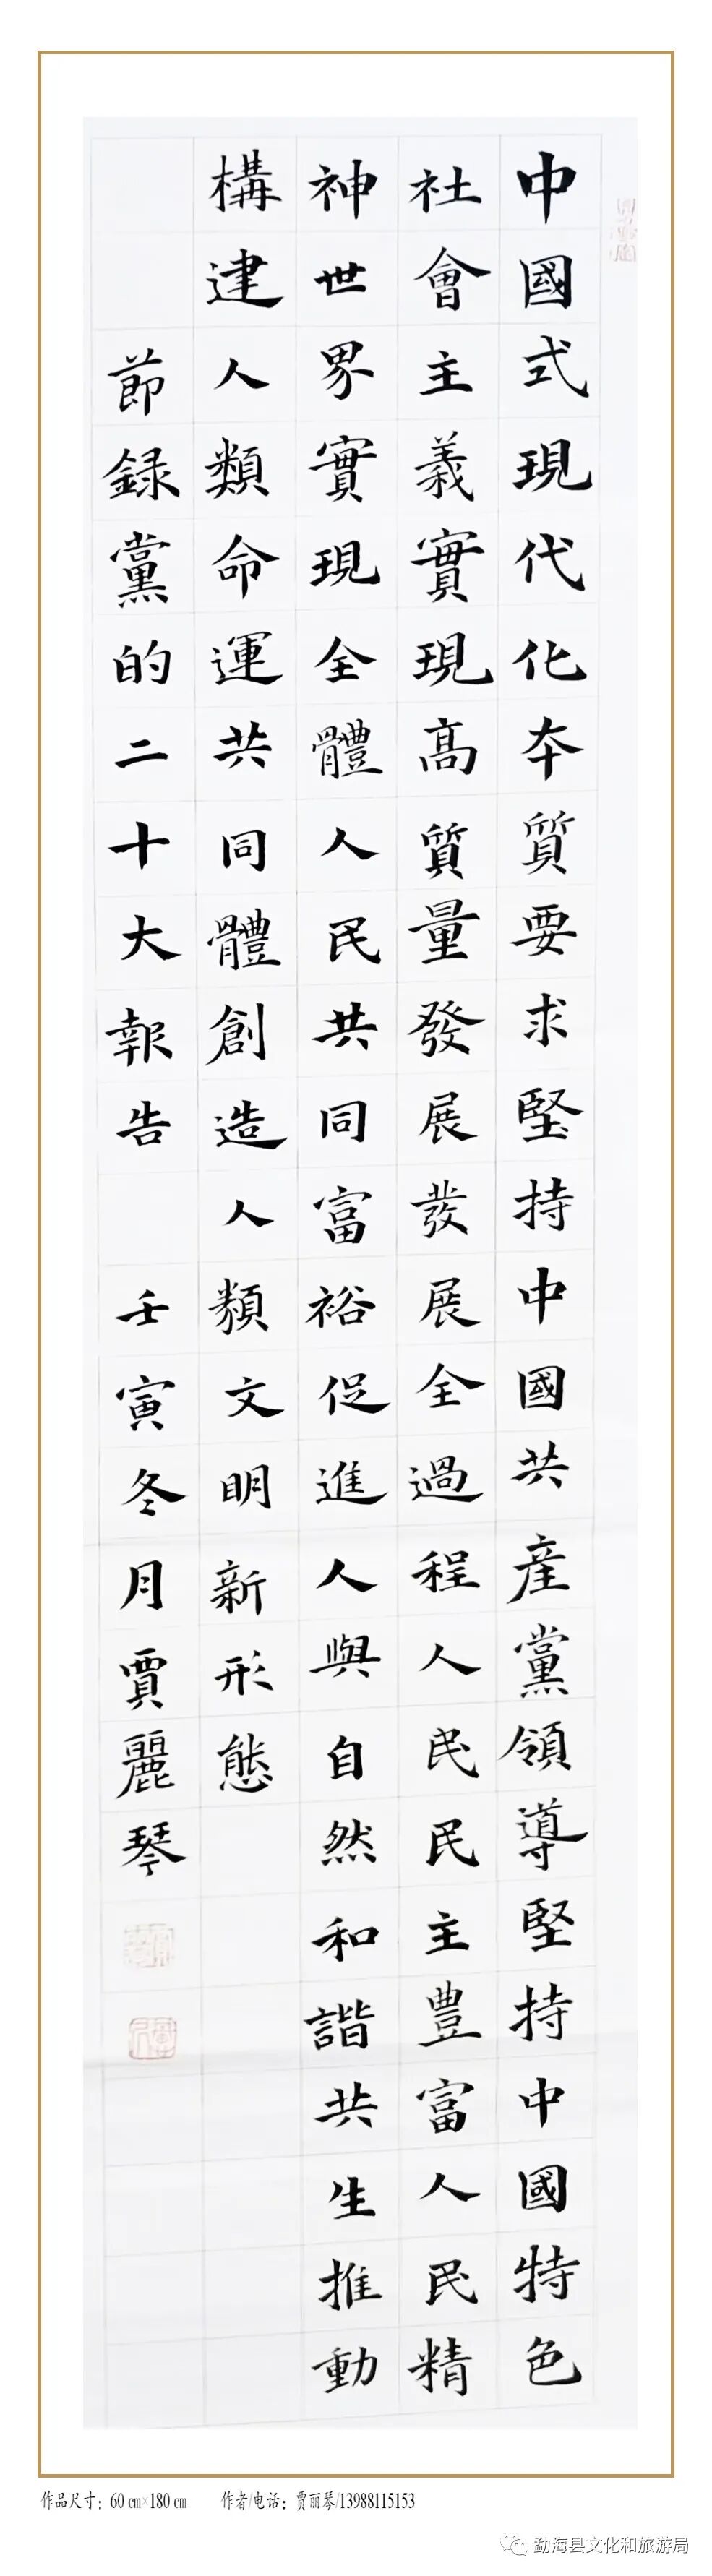 中國式現代化本質要求堅持中國共産黨領導堅持中國特色
社會主義實現高質量發展發展全過程人民民主豐富人民精
神世界實現全體人民共同富裕促進人與自然和諧共生推動
構建人類命運共同體創造人類文明新形態
節録黨的二十大報告 壬寅冬月賈麗琴
作品尺寸：60 cm×180 cm 作者/电话：贾丽琴/13988115153
勐海县文化和旅游局